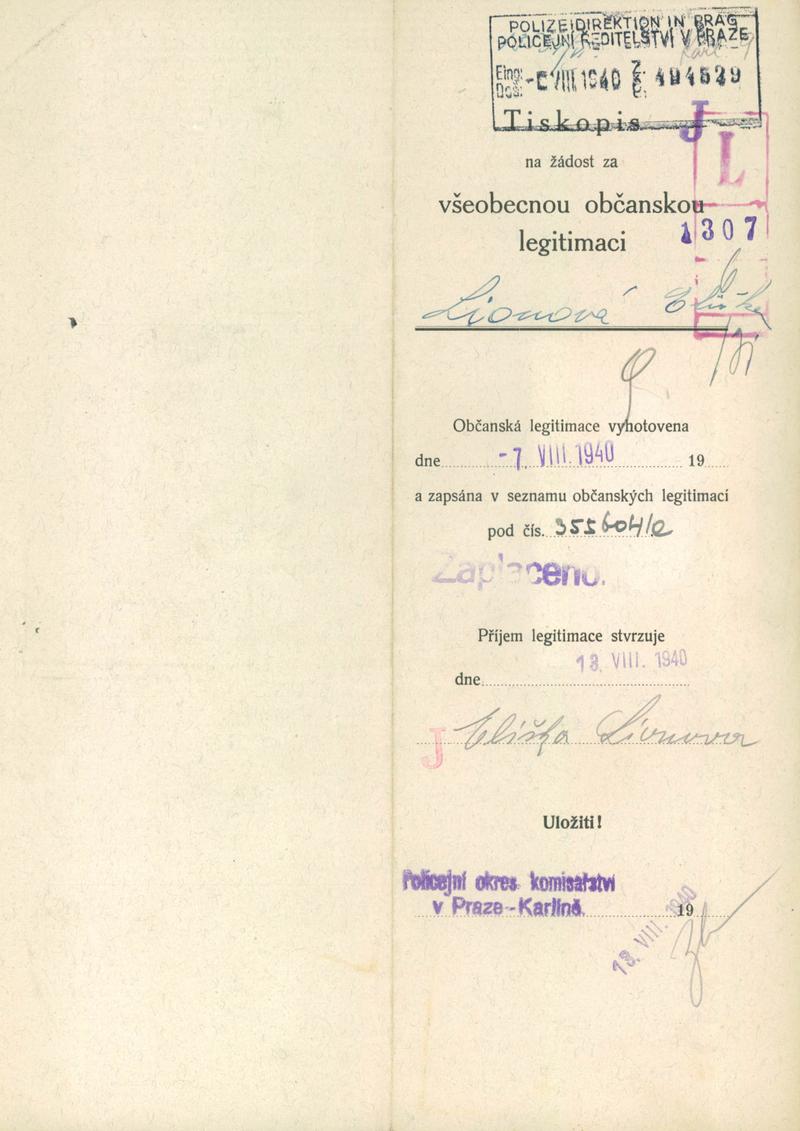 POLIZEIDIREKTION IN PRAG
POLICEJNÍ ŘEDITELSTVÍ V PRAZE
Eing:
Došl: VIII 1940 Z. Č. 494529
Tiskopis J
na žádost za L
všeobecnou občanskou
legitimaci 1307
Lionová Eliška
Občanská legitimace vyhotovena
dne -7. VIII. 1940 19
a zapsána v seznamu občanských legitimací
pod čís.
Zaplaceno.
Příjem legitimace stvrzuje
dne 13. VIII. 1940
J Eliška Lionova
Uložiti!
Policejní okres. komisařství
v Praze-Karlíně. 19
13. VIII. 1940